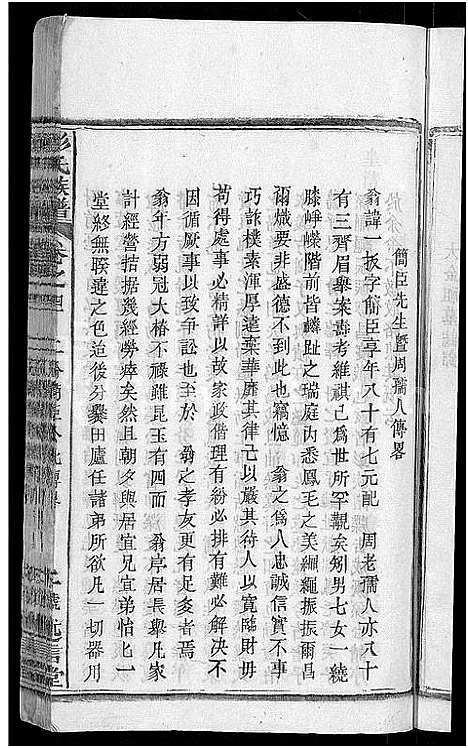 簡臣先生暨周孺人傳畧
翁諱一扳字簡臣享年八十有七元配　周老孺人亦八十
有三齊眉舉案壽考維祺已為世所罕覯矣矧男七女一繞
膝崢嶸階前皆麟趾之瑞庭內悉鳳毛之美繩繩振振爾昌
爾熾要非盛德不到此也竊憶　翁之為人忠誠信實不事
巧詐樸素渾厚遠棄華靡其律己以嚴其待人以寬臨財毋
苟得處事必精詳以故家政偕理有紛必排有難必解决不
因循厥事以致爭訟也至於　翁之孝友更有足多者焉
翁年方弱冠大椿不祿雖昆玉有四而　翁序居長舉凡家
計經營拮据幾經勞瘁矣然且朝夕與居宜兄宜弟怡怡一
堂終無睽違之色迨後分爨田廬任諸弟所欲凡一切器用
彭氏族譜　卷之四